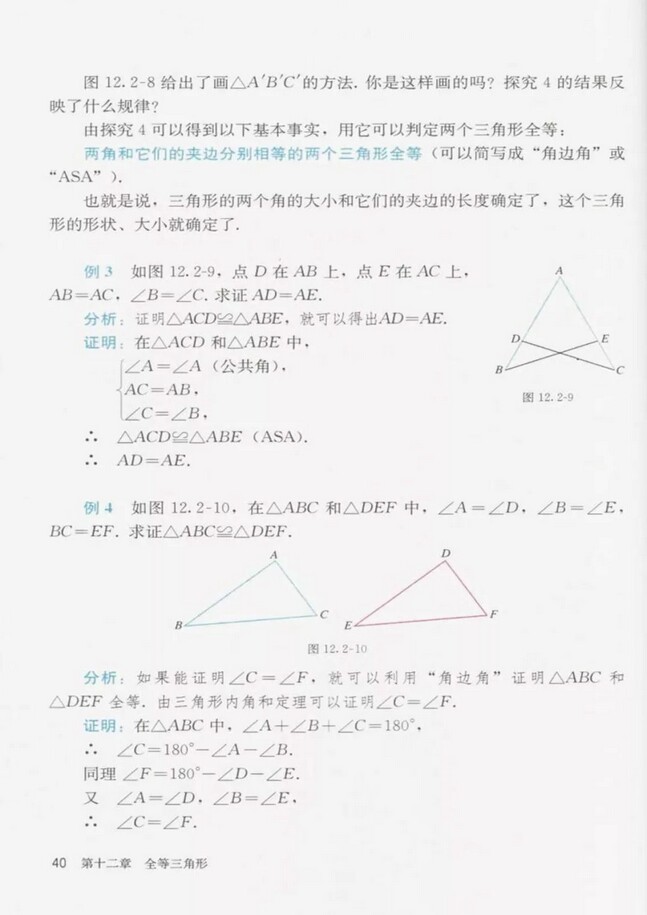 图 12.2-8 给出了画△A′B′C′的方法. 你是这样画的吗？探究 4 的结果反
映了什么规律？
由探究 4 可以得到以下基本事实，用它可以判定两个三角形全等：
两角和它们的夹边分别相等的两个三角形全等（可以简写成“角边角”或
“ASA”）.
也就是说，三角形的两个角的大小和它们的夹边的长度确定了，这个三角
形的形状、大小就确定了.
例 3 如图 12.2-9，点 D 在 AB 上，点 E 在 AC 上，
AB=AC，∠B=∠C. 求证 AD=AE.
分析：证明△ACD≌△ABE，就可以得出AD=AE.
证明：在△ACD 和△ABE 中，
∠A=∠A（公共角），
AC=AB，
∠C=∠B，
∴ △ACD≌△ABE（ASA）.
∴ AD=AE.
A
D
E
B
C
图 12.2-9
例 4 如图 12.2-10，在△ABC 和△DEF 中，∠A=∠D，∠B=∠E，
BC=EF. 求证△ABC≌△DEF.
A
B
C
D
E
F
图 12.2-10
分析：如果能证明∠C=∠F，就可以利用“角边角”证明△ABC 和
△DEF 全等. 由三角形内角和定理可以证明∠C=∠F.
证明：在△ABC 中，∠A+∠B+∠C=180°，
∴ ∠C=180°-∠A-∠B.
同理 ∠F=180°-∠D-∠E.
又 ∠A=∠D，∠B=∠E，
∴ ∠C=∠F.
40 第十二章 全等三角形